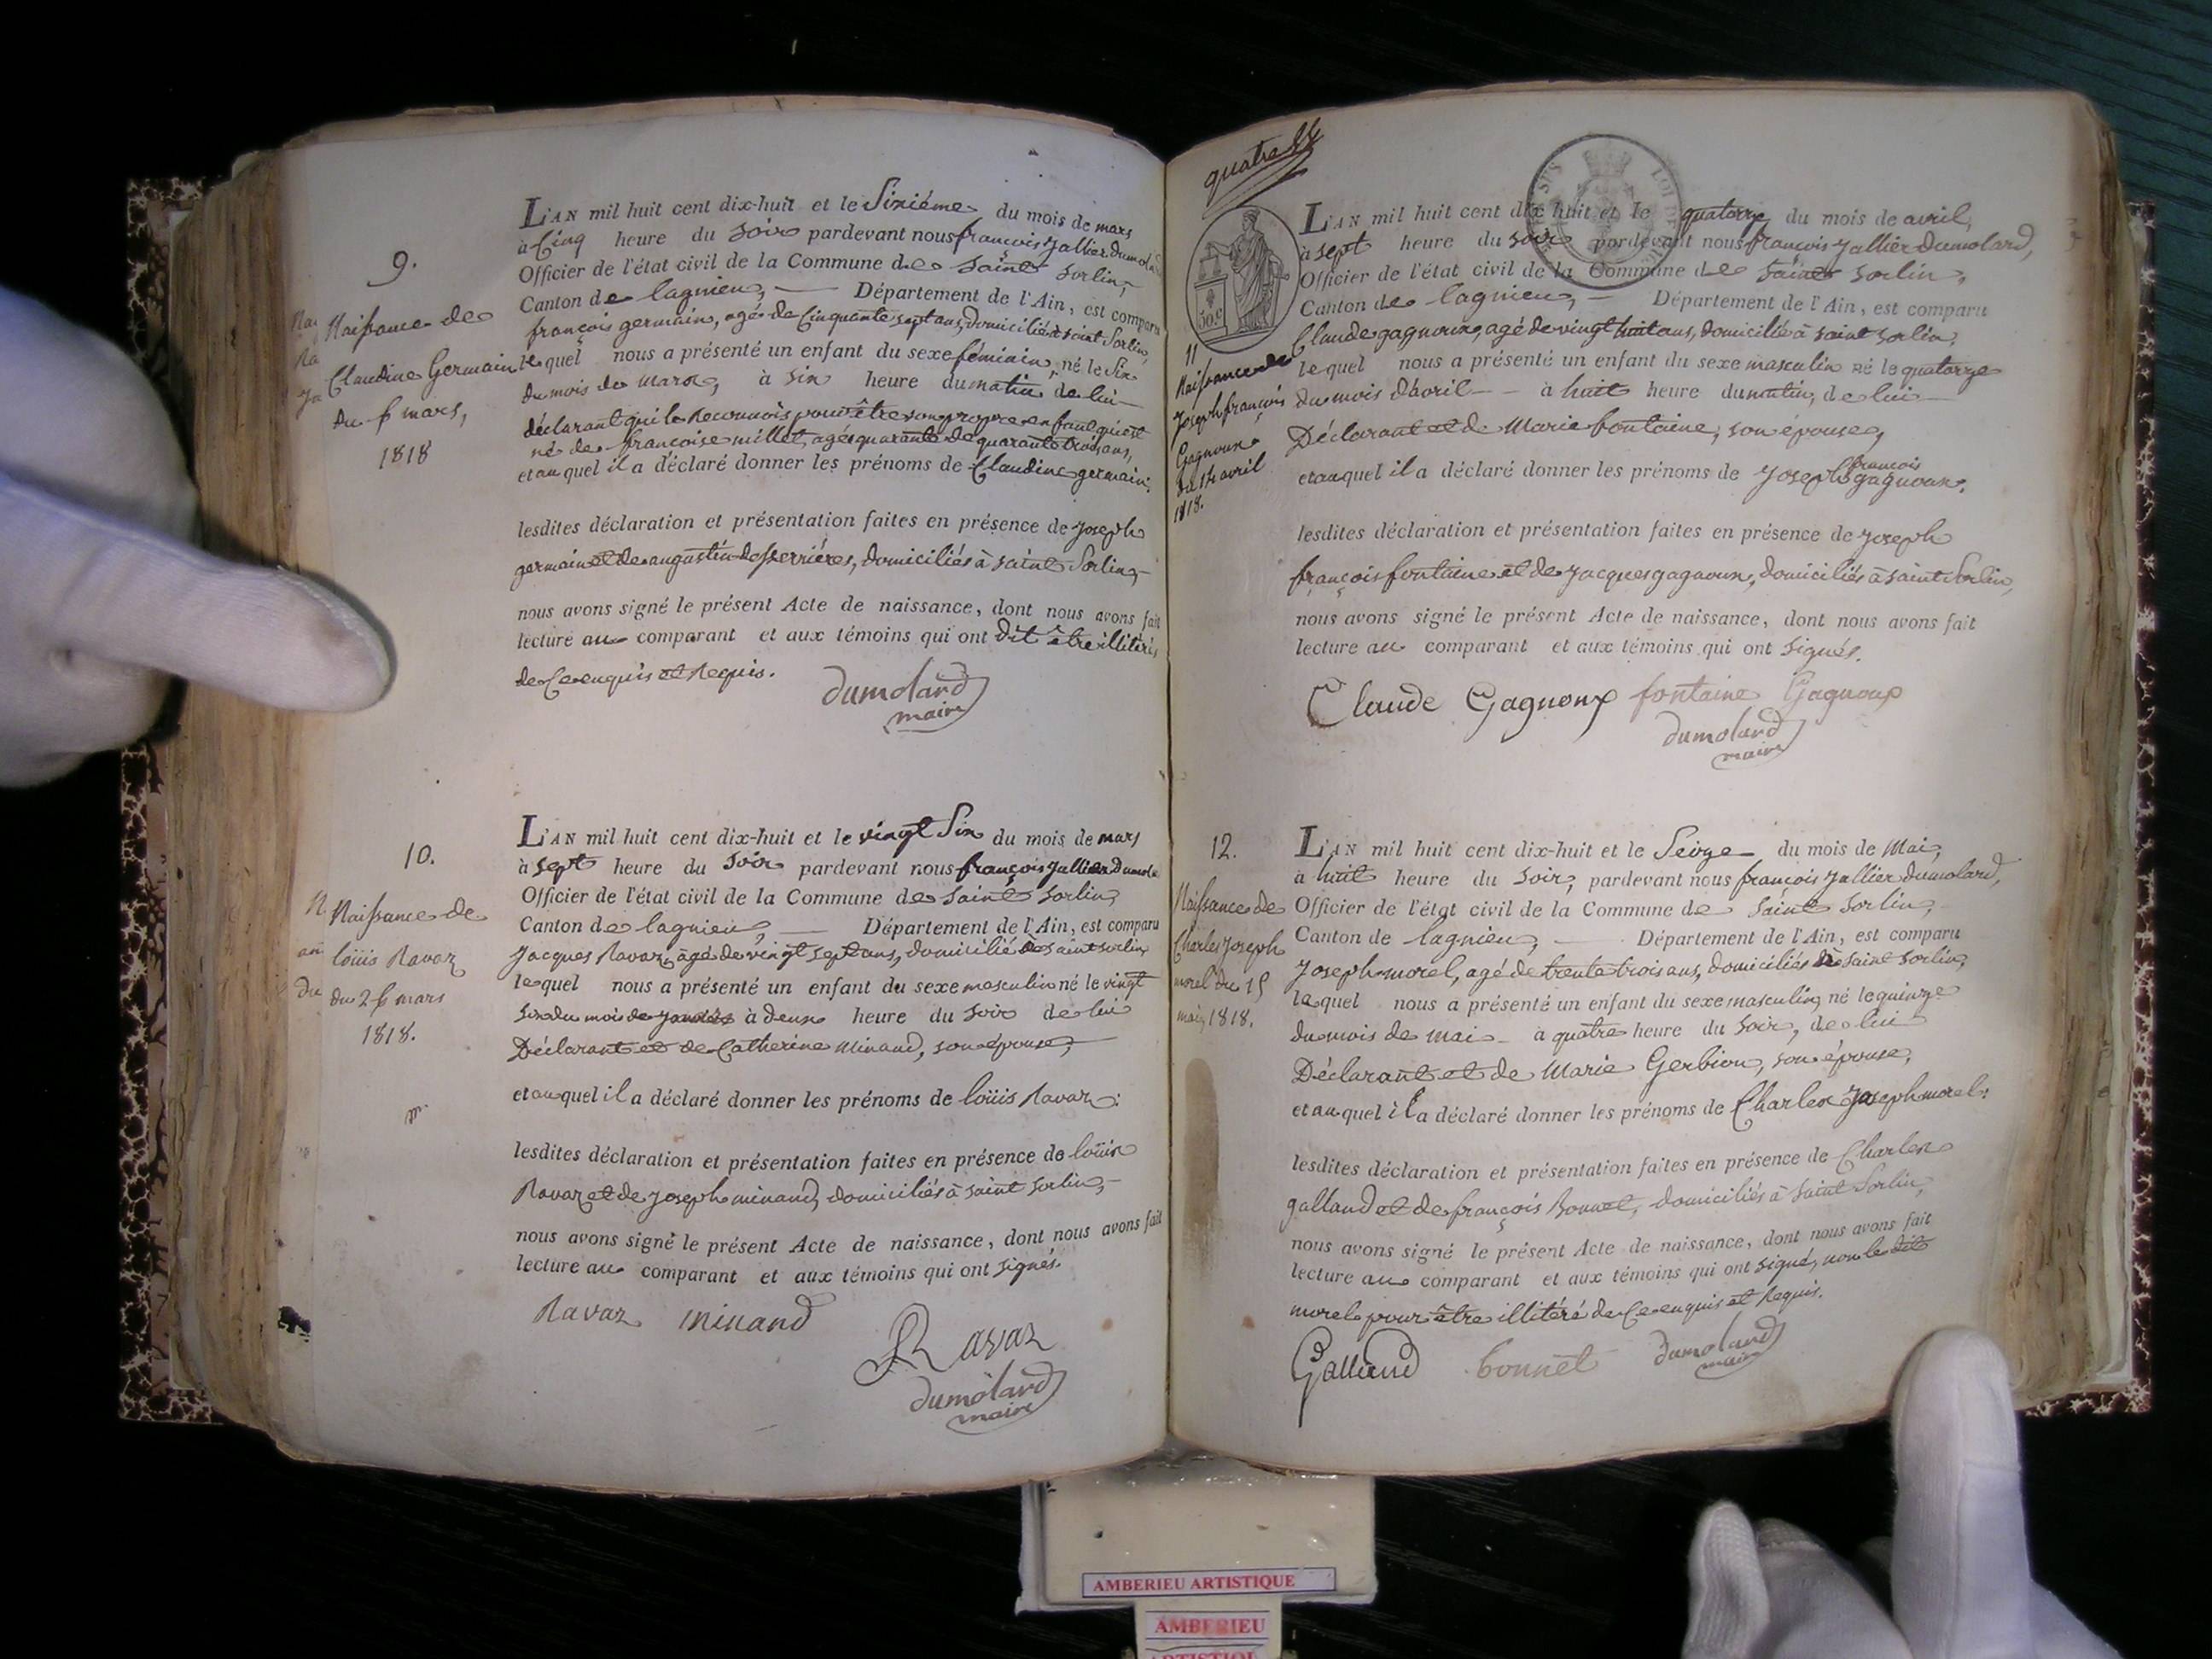 9.
Naissance de
Claudine Germain
du 6 mars,
1818
L'AN mil huit cent dix-huit et le Sixiéme du mois de mars
à Cinq heure du Soir pardevant nous françois Jallier dumolard
Officier de l'état civil de la Commune de Saint Sorlin,
Canton de lagnieu, — Département de l'Ain, est comparu
françois germain, agé de Cinquante sept ans, domicilié à saint Sorlin,
lequel nous a présenté un enfant du sexe féminin, né le Six
du mois de mars, à Six heure du matin de lui
déclarant qui le Reconnois pour être son propre enfant qui est
né de françoise millet, agée quarante de quarante trois ans,
et auquel il a déclaré donner les prénoms de Claudine germain.
lesdites déclaration et présentation faites en présence de Joseph
germain et de augustin desserriéres, domiciliés à saint Sorlin,
nous avons signé le présent Acte de naissance, dont nous avons fait
lecture au comparant et aux témoins qui ont dit être illitérés
de Ce enquis et Requis.
dumolard
maire
10.
Naissance de
loüis Ravaz
du 26 mars
1818.
L'AN mil huit cent dix-huit et le vingt Six du mois de mars
à sept heure du Soir pardevant nous françois Jallier Dumola
Officier de l'état civil de la Commune de Saint Sorlin,
Canton de lagnieu, — Département de l'Ain, est comparu
Jacques Ravaz, âgé de vingt sept ans, domicilié de saint sorlin,
lequel nous a présenté un enfant du sexe masculin né le vingt
Six du mois de à deux heure du Soir de lui
Déclarant et de Catherine Minand, son épouse,
et auquel il a déclaré donner les prénoms de loüis Ravaz.
lesdites déclaration et présentation faites en présence de loüis
Ravaz et de Joseph minand, domiciliés à saint Sorlin,
nous avons signé le présent Acte de naissance, dont nous avons fait
lecture au comparant et aux témoins qui ont signés.
Ravaz minand
Ravaz
dumolard
maire
quatre
50.c
11
Naissance de
Joseph françois
Gagnoux
du 14 avril
1818.
L'AN mil huit cent dix huit et le quatorze du mois de avril,
à sept heure du soir pardevant nous françois Jallier dumolard,
Officier de l'état civil de la Commune de Saint Sorlin,
Canton de lagnieu, — Département de l'Ain, est comparu
Claude gagnoux, agé de vingt huit ans, domicilié à saint Sorlin,
lequel nous a présenté un enfant du sexe masculin né le quatorze
du mois d'avril — à huit heure du matin, de lui
Déclarant et de Marie fontaine, son épouse,
et auquel il a déclaré donner les prénoms de Joseph françois gagnoux.
lesdites déclaration et présentation faites en présence de Joseph
françois fontaine et de Jacques gagnoux, domiciliés à saint Sorlin,
nous avons signé le présent Acte de naissance, dont nous avons fait
lecture au comparant et aux témoins qui ont signés.
Claude Gagnoux fontaine Gagnoux
dumolard
maire
12.
Naissance de
Charles Joseph
morel du 15
mai, 1818.
L'AN mil huit cent dix-huit et le Seize du mois de Mai,
à huit heure du Soir, pardevant nous françois Jallier dumolard,
Officier de l'état civil de la Commune de Saint Sorlin,
Canton de lagnieu, — Département de l'Ain, est comparu
Joseph morel, agé de trente trois ans, domiciliés de saint Sorlin,
lequel nous a présenté un enfant du sexe masculin, né le quinze
du mois de mai à quatre heure du Soir, de lui
Déclarant et de Marie Gerbion, son épouse,
et auquel il a déclaré donner les prénoms de Charles Joseph morel.
lesdites déclaration et présentation faites en présence de Charles
galland et de françois Bonnet, domiciliés à saint Sorlin,
nous avons signé le présent Acte de naissance, dont nous avons fait
lecture au comparant et aux témoins qui ont signé, non le dit
morel pour être illitéré de Ce enquis et Requis.
Galland bonnet dumolard
maire
AMBERIEU ARTISTIQUE
AMBERIEU